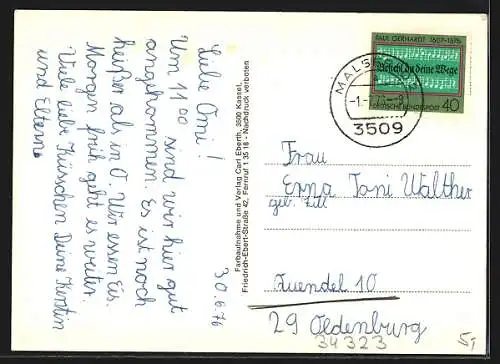 30.6.76
Liebe Omi!
Um 11⁰⁰ sind wir hier gut
angekommen. Es ist noch
heißer als in O. Wir essen Eis.
Morgen früh geht es weiter.
Viele liebe Küsschen Deine Kerstin
und Eltern
Farbaufnahme und Verlag Carl Eberth, 3500 Kassel,
Friedrich-Ebert-Straße 42, Fernruf 1 35 18 - Nachdruck verboten
PAUL GERHARDT 1607-1676
Befiehl du deine Wege
DEUTSCHE BUNDESPOST 40
3509
Frau
Erna Toni Walther
geb.
10
29 Oldenburg
34323